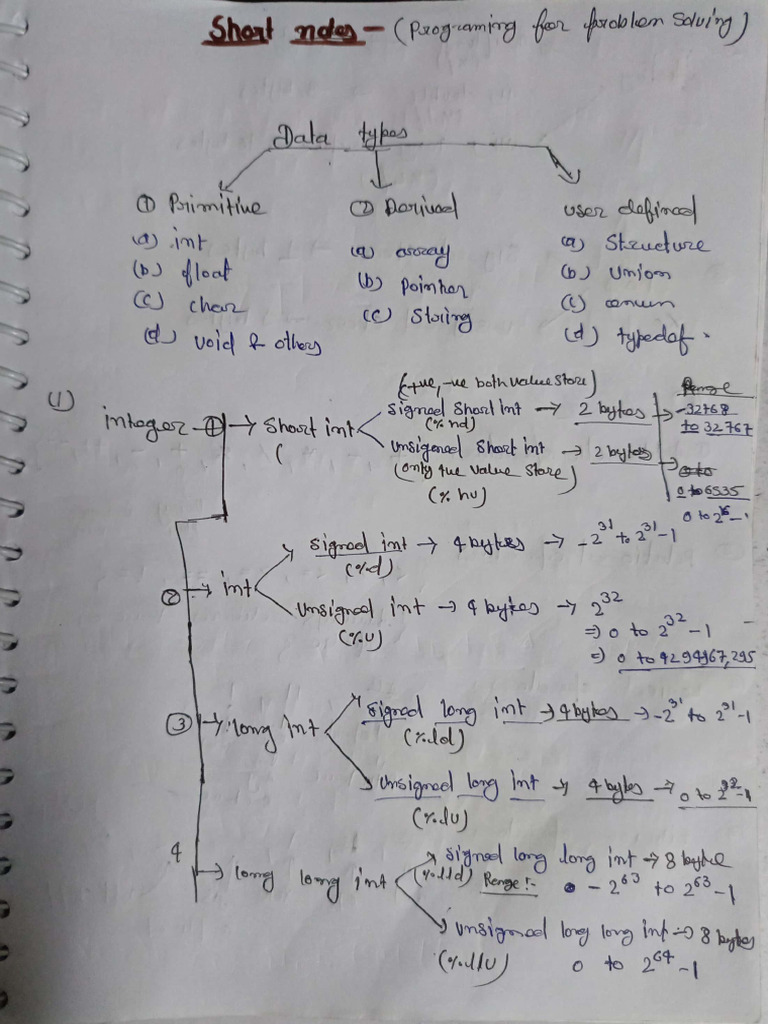 Short notes - (Programing for problem solving)
Data types
① Primitive
(a) int
(b) float
(c) char
(d) void & others
② Derived
(a) array
(b) Pointer
(c) String
user defined
(a) Structure
(b) Union
(c) enum
(d) typedef.
(1)
integer ① → Short int
(
(+ve, -ve both value store)
Signed Short int → 2 bytes
(% hd)
Range
-32768
to 32767
Unsigned Short int → 2 bytes
(only +ve value store)
(% hu)
0 to
0 to 6535
0 to 2^16 -1
② → int
Signed int → 4 bytes → -2^31 to 2^31 -1
(%d)
Unsigned int → 4 bytes → 2^32
(%u)
⇒ 0 to 2^32 -1
⇒ 0 to 4294967,295
③ → long int
Signed long int → 4 bytes → -2^31 to 2^31 -1
(%ld)
Unsigned long int → 4 bytes → 0 to 2^32 -1
(%lu)
4 → long long int
signed long long int → 8 byte
(%lld) Range :- -2^63 to 2^63 -1
unsigned long long int → 8 bytes
(%llu) 0 to 2^64 -1